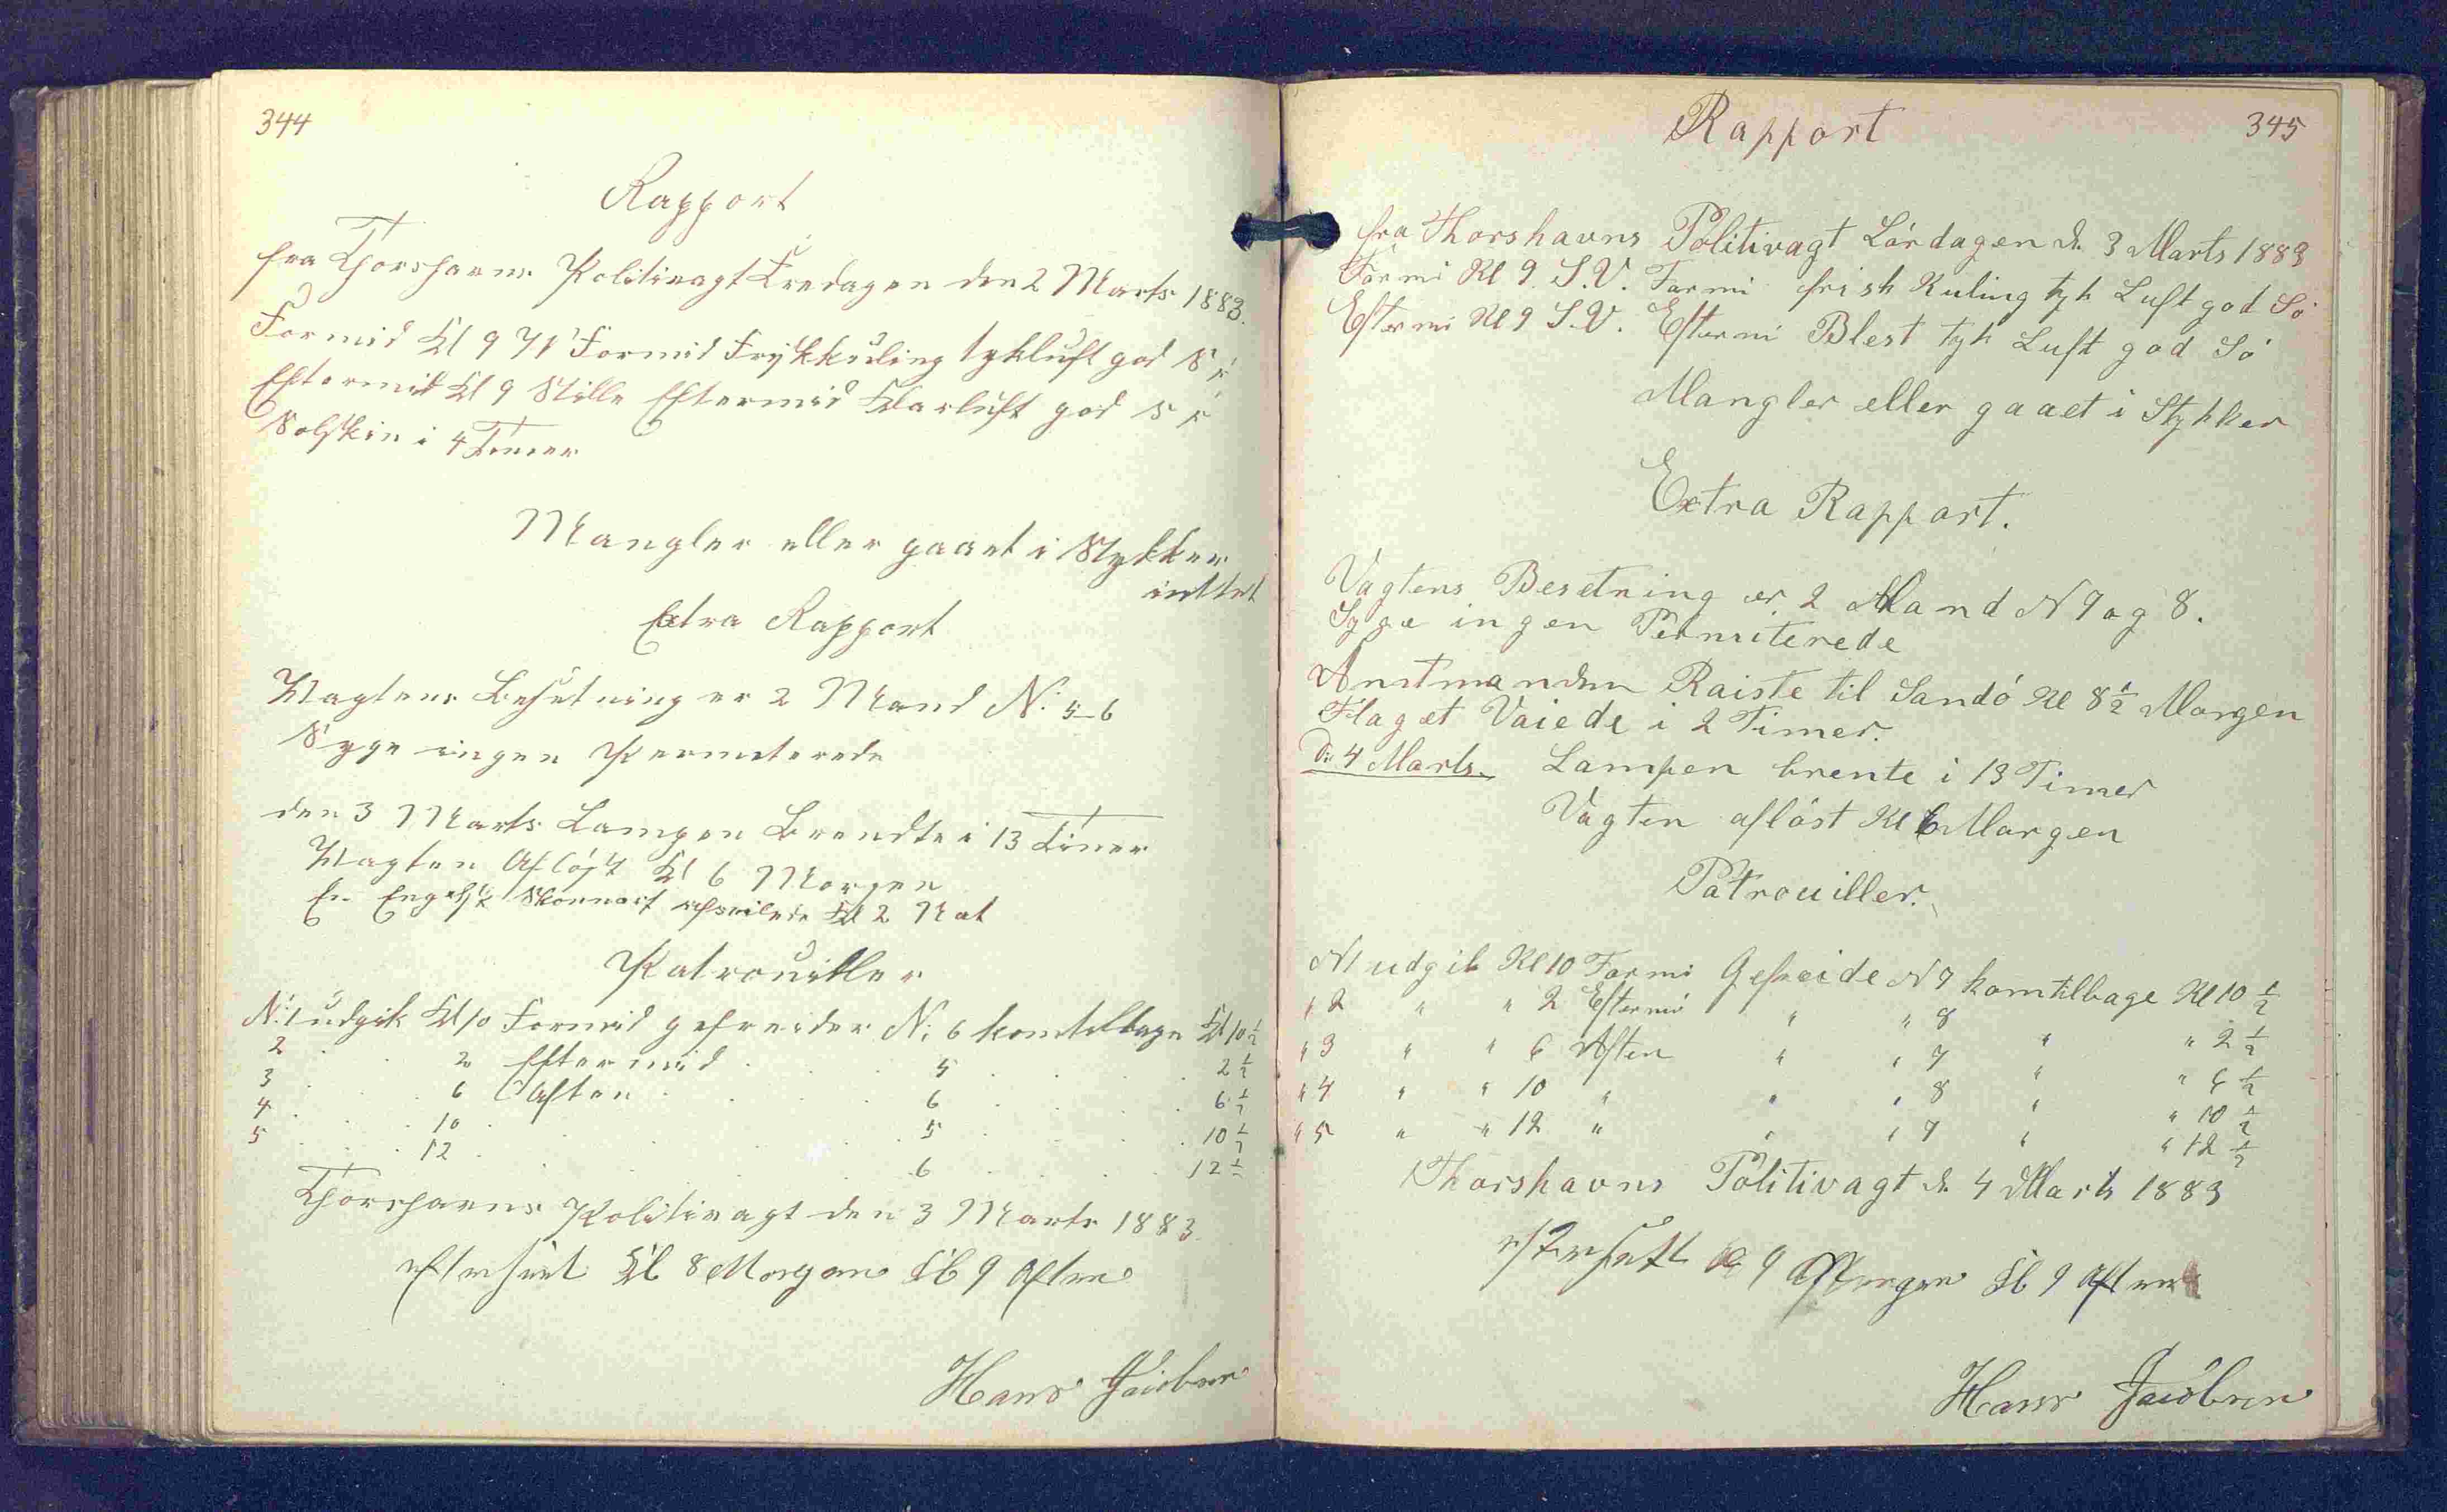 344
Rapport
fra Thorshavns Politivagt Fredagen den 2 Marts 1883.
Formid Kl 9 Formid Friskkuling tykluft god Sø
Eftermid Kl 9 Stille Eftermid Klarluft god Sø
Solskin i 4 Timer
Mangler eller gaaet i Stykker
inttet
Extra Rapport
Wagtens Besetning er 2 Mand N: 5-6
Syge ingen Permeterede
den 3 Marts Lampen Brendte i 13 Timer
Wagten Afløst Kl 6 Morgen
En Engelsk Skonnert afseilede Kl 2 Nat
Patrouiller
N: 1 udgik Kl 10 Formid gefreider N: 6 komtilbage Kl 10 1/2
2 . . 2 Eftermid . . . 5 . . . 2 1/2
3 . . 6 Aften . . . 6 . . . 6 1/2
4 . . 10 . . . . 5 . . . 10 1/2
5 . . 12 . . . . 6 . . . 12 1/2
Thorshavns Politivagt den 3 Marts 1883.
efterseet Kl 8 Morgen Kl 9 Aften
Hans Jacobsen
Rapport
345
fra Thorshavns Politivagt Lórdagen d. 3 Marts 1883
Formi Kl 9. S.V. Formi frisk Kuling tyk Luft god Só
Eftermi Kl 9 S.V. Eftermi Blest tyk Luft god Só
Mangler eller gaaet i Stykker
Extra Rapport.
Vagtens Besetning er 2 Mand N 7 og 8.
Syge ingen Permiterede
Amtmanden Raiste til Sandó Kl 8 1/2 Morgen
Flaget Vaiede i 2 Timer.
D: 4 Marts. Lampen brente i 13 Timer
Vagten aflóst Kl 6 Morgen
Patrouiller.
N1 udgik Kl 10 Formi Gefreide N 7 komtilbage Kl 10 1/2
" 2 " " 2 Eftermi " " 8 " " 2 1/2
" 3 " " 6 Aften " " 7 " " 6 1/2
" 4 " " 10 " " " 8 " " 10 1/2
" 5 " " 12 " " " 7 " " 12 1/2
Thorshavns Politivagt d. 4 Marts 1883
efterseett Kl 9 Morgen Kl. 9 Aften
Hans Jacobsen